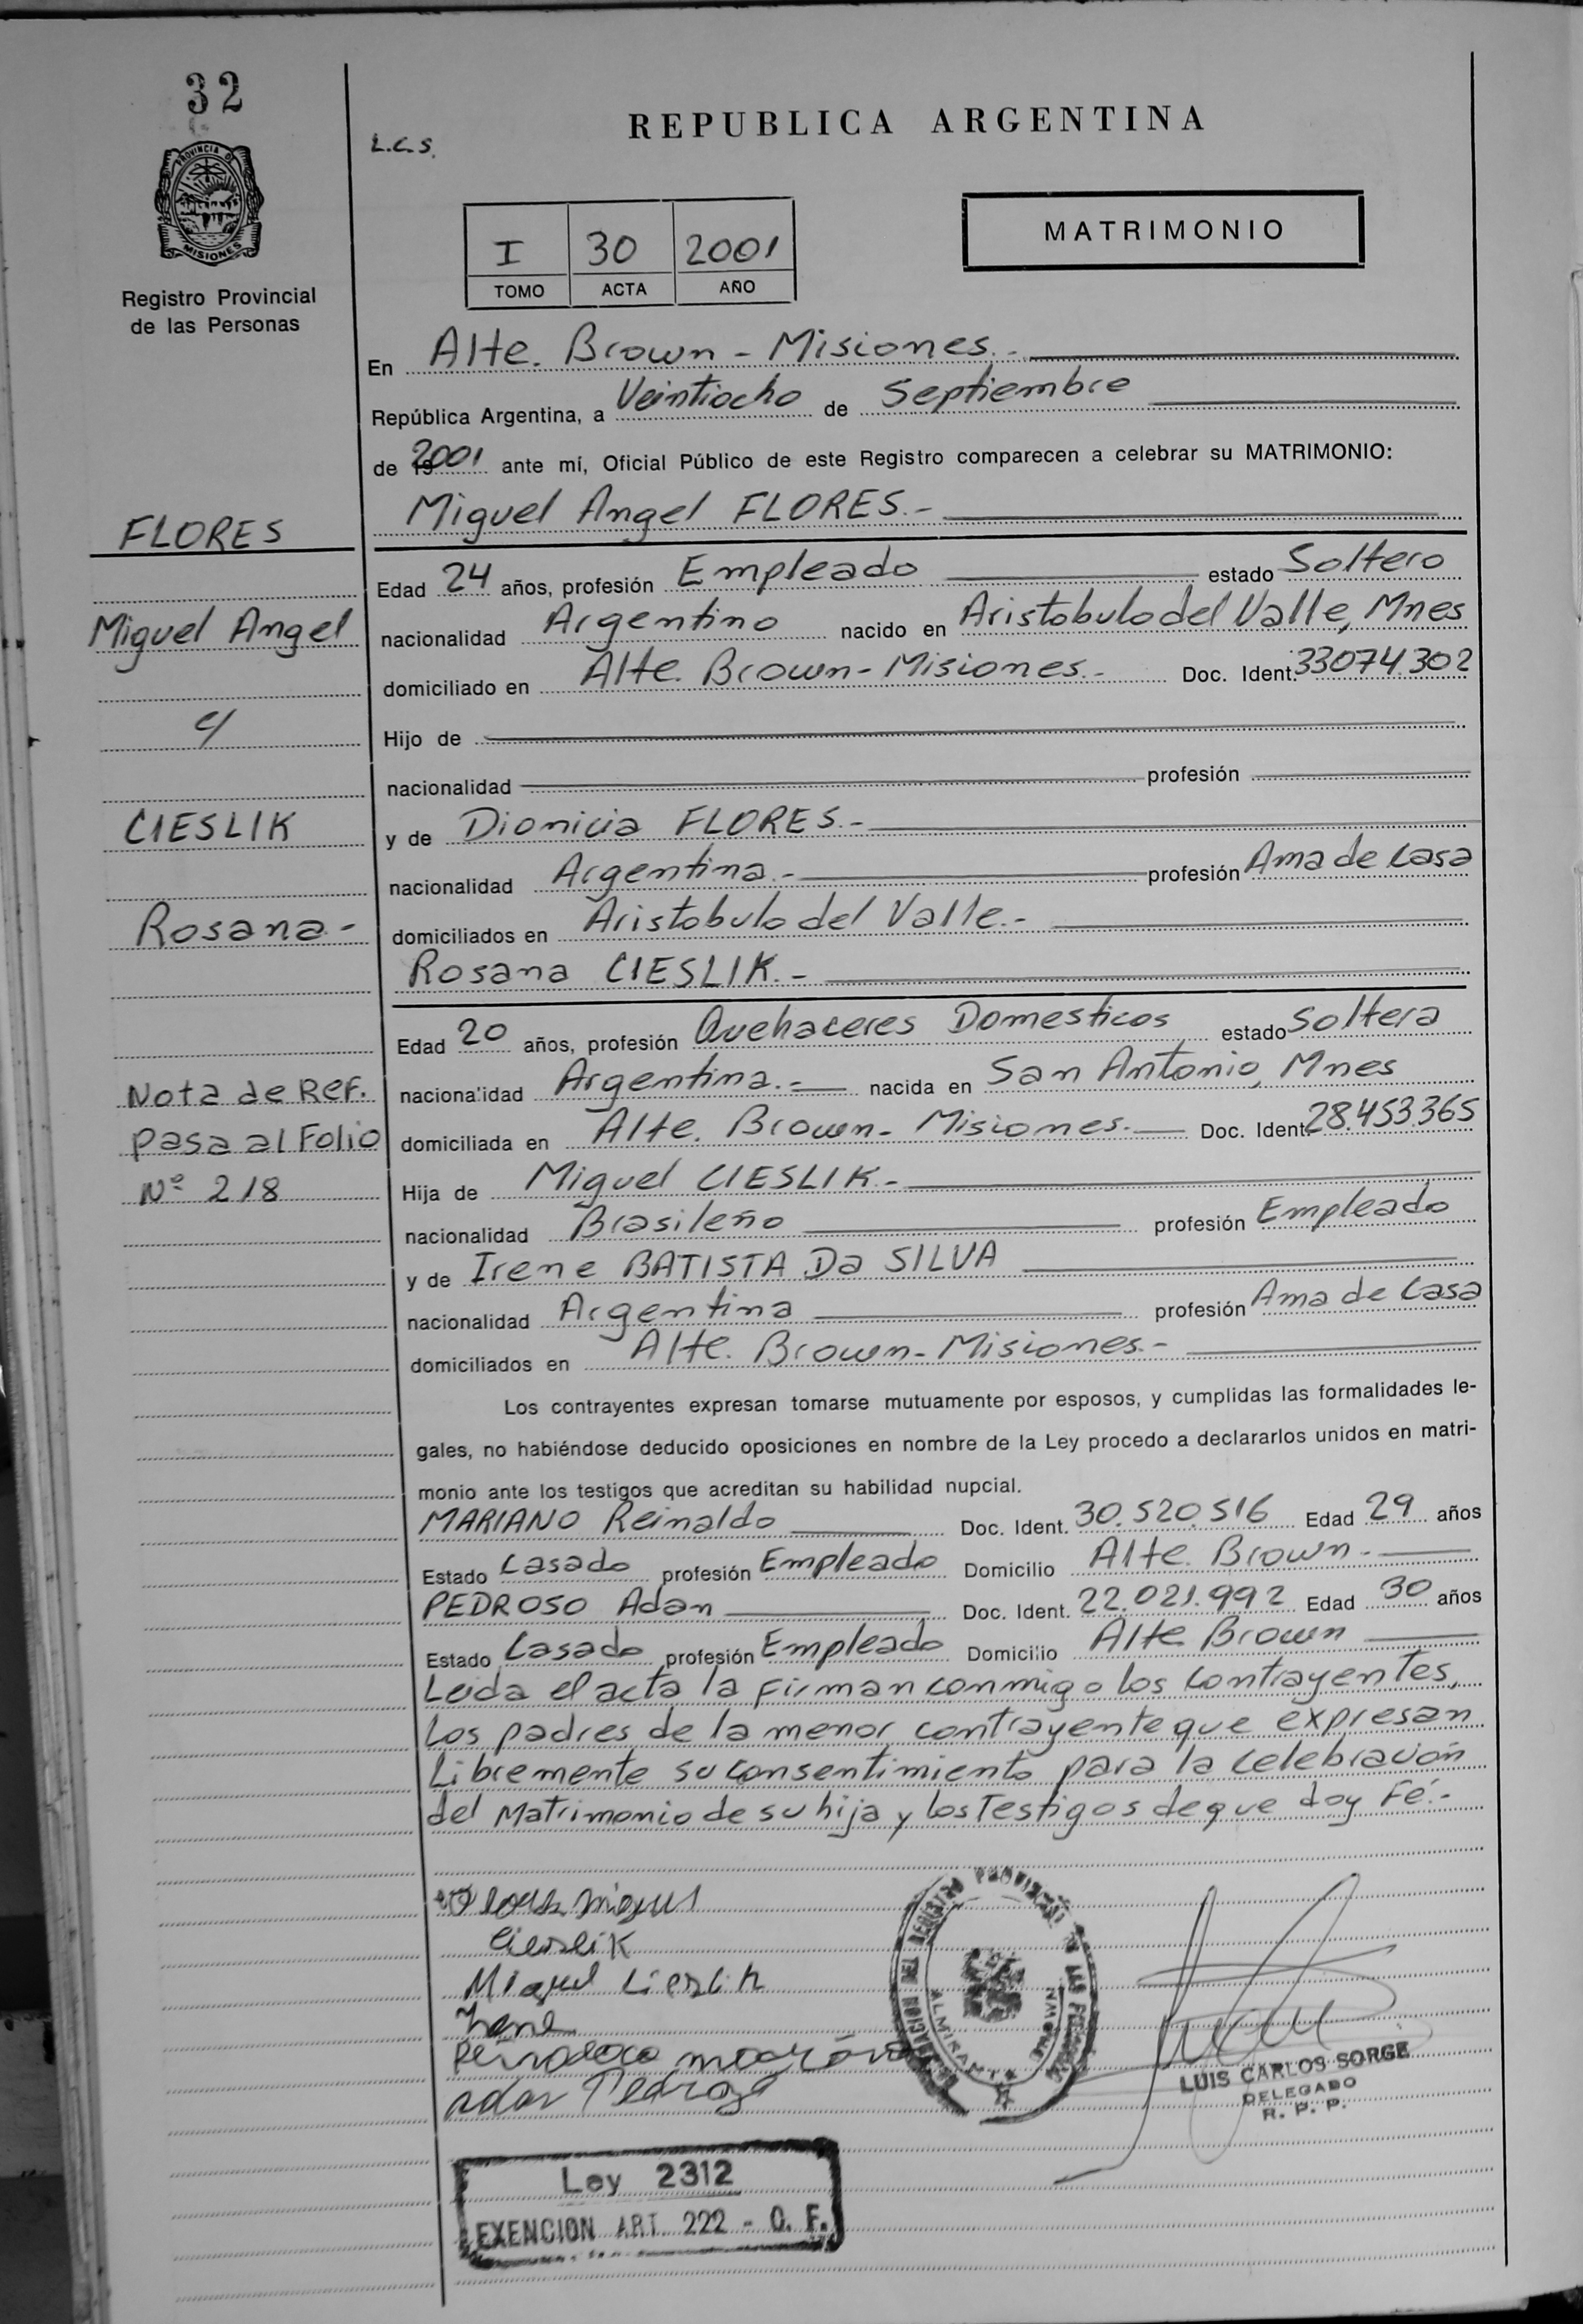 32
L.C.S.
REPUBLICA ARGENTINA
PROVINCIA DE
MISIONES
Registro Provincial
de las Personas
I 30 2001
TOMO ACTA AÑO
MATRIMONIO
En Alte. Brown - Misiones.-
República Argentina, a Veintiocho de Septiembre
de 2001 ante mí, Oficial Público de este Registro comparecen a celebrar su MATRIMONIO:
Miguel Angel FLORES.-
FLORES
Miguel Angel
c/
CIESLIK
Rosana-
Nota de REF.
Pasa al Folio
Nº 218
Edad 24 años, profesión Empleado estado Soltero
nacionalidad Argentino nacido en Aristobulo del Valle, Mnes
domiciliado en Alte. Brown - Misiones.- Doc. Ident. 33074.302
Hijo de
nacionalidad profesión
y de Dionicia FLORES.-
nacionalidad Argentina.- profesión Ama de Casa
domiciliados en Aristobulo del Valle.-
Rosana CIESLIK.-
Edad 20 años, profesión Quehaceres Domesticos estado Soltera
nacionalidad Argentina.- nacida en San Antonio, Mnes
domiciliada en Alte. Brown - Misiones.- Doc. Ident. 28.453.365
Hija de Miguel CIESLIK.-
nacionalidad Brasileño profesión Empleado
y de Irene BATISTA Da SILVA
nacionalidad Argentina profesión Ama de Casa
domiciliados en Alte. Brown - Misiones.-
Los contrayentes expresan tomarse mutuamente por esposos, y cumplidas las formalidades le-
gales, no habiéndose deducido oposiciones en nombre de la Ley procedo a declararlos unidos en matri-
monio ante los testigos que acreditan su habilidad nupcial.
MARIANO Reinaldo Doc. Ident. 30.520.516 Edad 29 años
Estado Casado profesión Empleado Domicilio Alte. Brown.-
PEDROSO Adan Doc. Ident. 22.021.992 Edad 30 años
Estado Casado profesión Empleado Domicilio Alte Brown
Leida el acta la Firman conmigo los Contrayentes,
Los padres de la menor contrayente que expresan
Libremente su consentimiento para la celebración
del Matrimonio de su hija y los Testigos de que doy Fé.-
Cieslik
Miguel Cieslik
Irene
adan Pedroso
ALMIRANTE BROWN
LUIS CARLOS SORGE
DELEGADO
R. P. P.
Ley 2312
EXENCION ART. 222 - C. F.